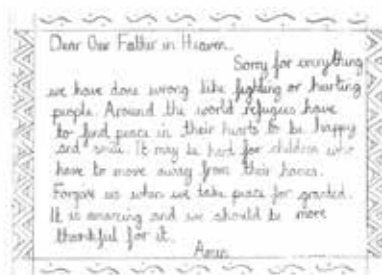 Dear Our Father in Heaven,
Sorry for everything
we have done wrong like fighting or hurting
people. Around the world refugees have
to find peace in their hearts to be happy
and smile. It may be hard for children who
have to move away from their homes.
Forgive us when we take peace for granted.
It is amazing and we should be more
thankful for it.
Amen